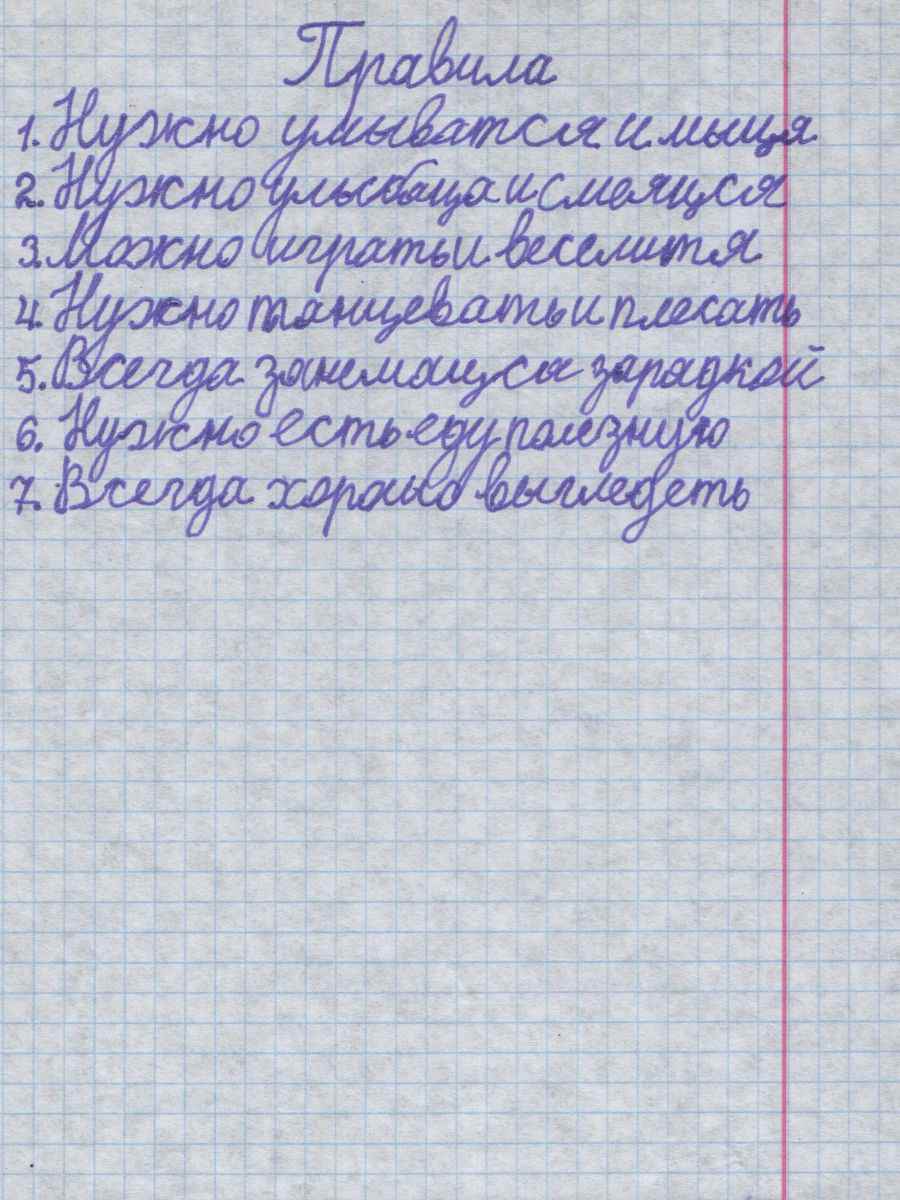 Правила
1. Нужно умыватся и мыця
2. Нужно улыбаца и смеяцся
3. Можно играть и веселитя
4. Нужно танцевать и плесать
5. Всегда занемацся зарадкой
6. Нужно есть еду полезную
7. Всегда хорошо выгледеть